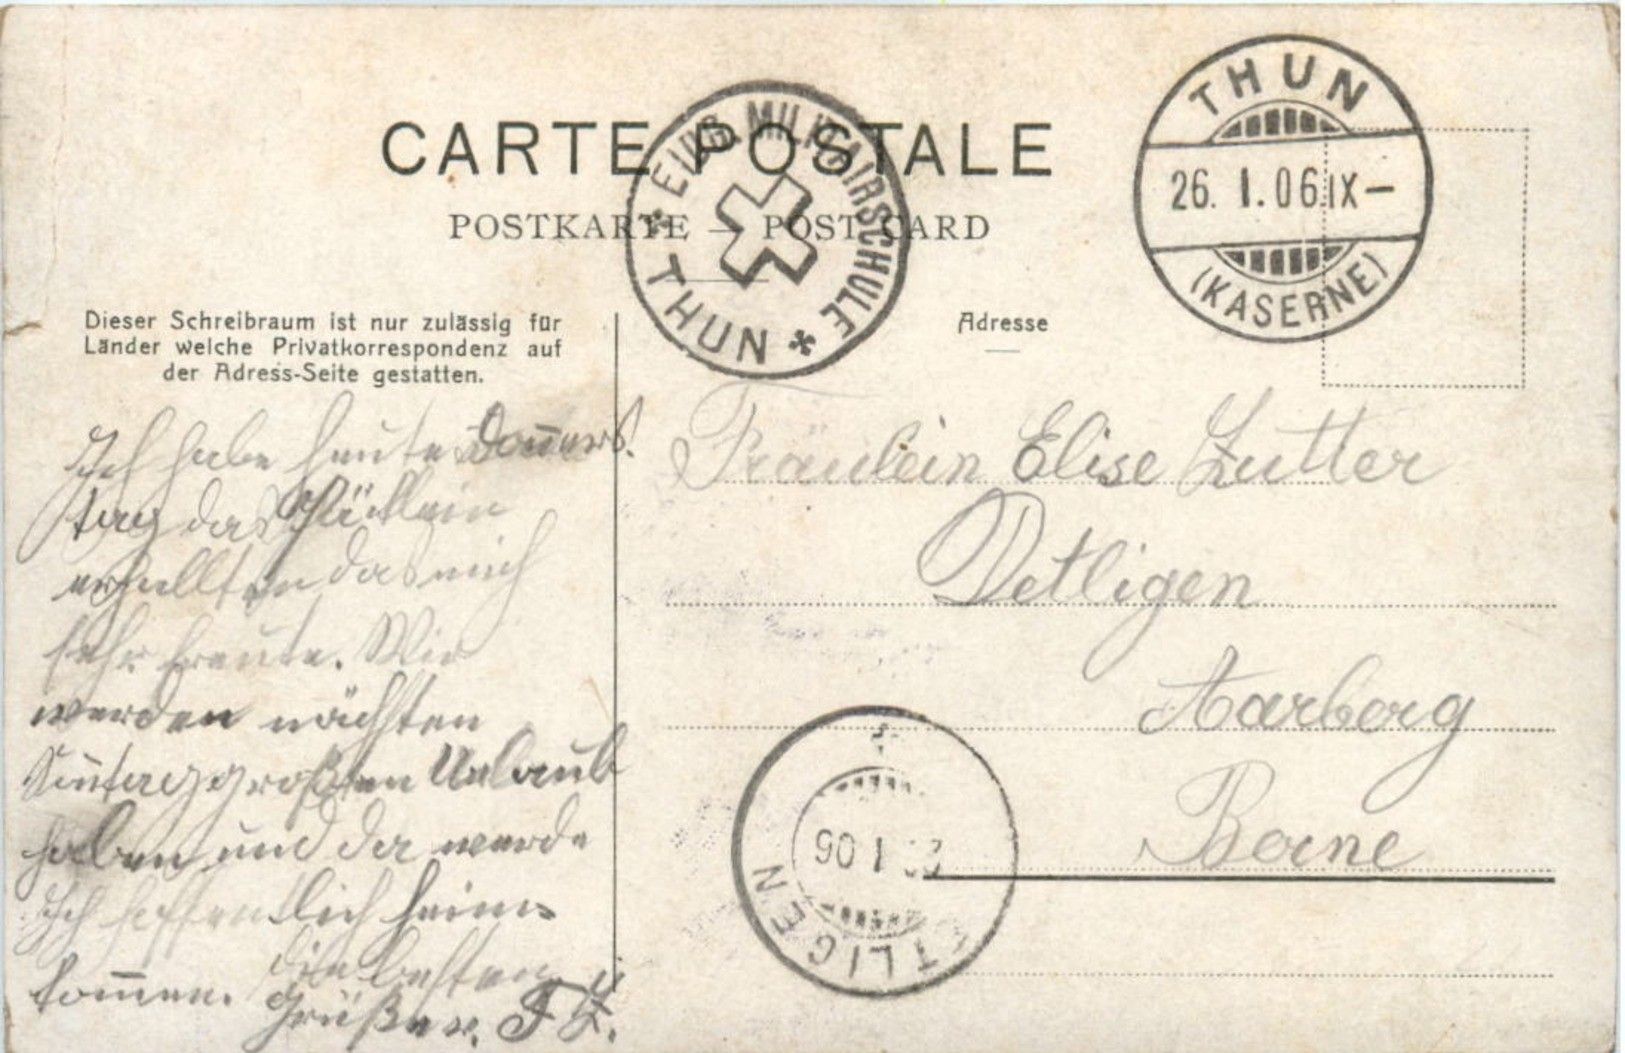 CARTE POSTALE
POSTKARTE — POST CARD
EIDG. MILITAIRSCHULE
* THUN *
THUN
26. I. 06 IX—
(KASERNE)
Dieser Schreibraum ist nur zulässig für
Länder welche Privatkorrespondenz auf
der Adress-Seite gestatten.
Adresse
Ich habe heute Donners
tag das Päcklein
erhallten das mich
sehr freute. Wir
werden nächsten
Sontag großen Urlaub
haben und da werde
Ich hoffentlich heim
kommen. die besten
Grüße
Fräulein Elise Zutter
Detligen
Aarberg
Berne
I 06
TLIGEN